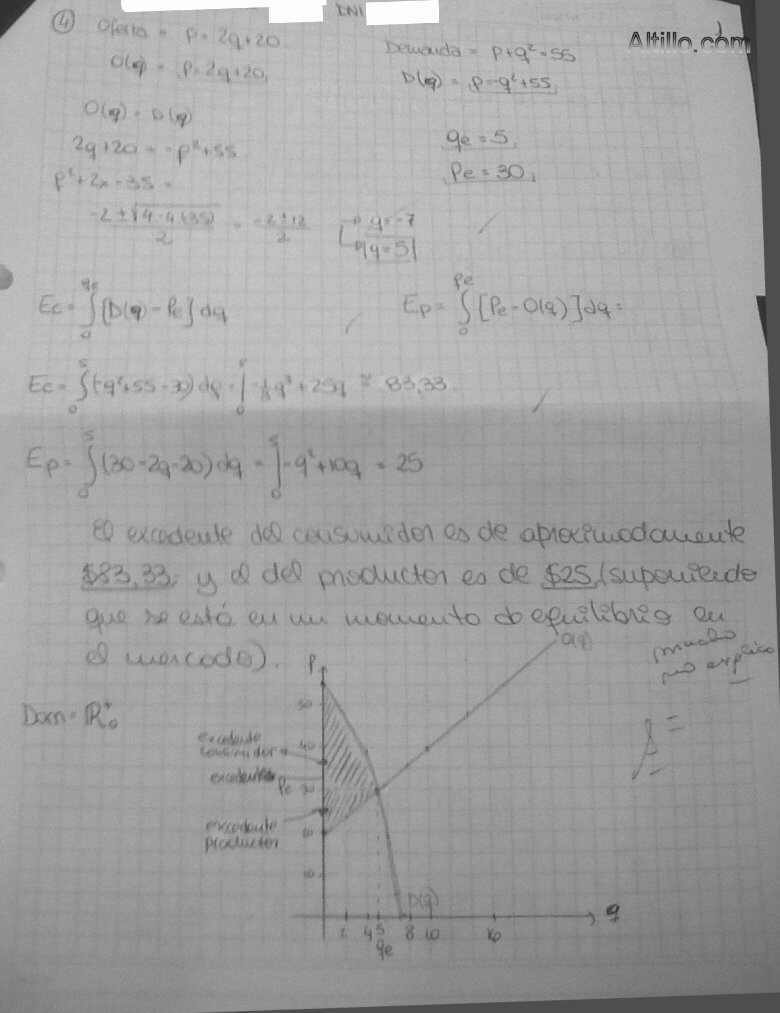 DNI
Altillo.com
④ Oferta = p = 2q+20
Demanda = p+q²=55
O(q) = p=2q+20
D(q) = p=-q²+55
O(q) = D(q)
2q+20 = -p²+55
qe = 5
p²+2x-35 =
Pe = 30
-2 ± √4-4(35) / 2 = -2±12 / 2
q=-7
q=5
Ec = ∫₀^qe [D(q) - Pe] dq
Ep = ∫₀^Pe [Pe - O(q)] dq =
Ec = ∫₀⁵ (-q²+55-30) dq = |₀⁵ -⅓q³+25q ≅ 83,33
Ep = ∫₀⁵ (30-2q-20) dq = |₀⁵ -q²+10q = 25
El excedente del consumidor es de aproximadamente
$83,33 y el del productor es de $25 (suponiendo
que se está en un momento de equilibrio en
el mercado).
Dom = ℝ₀⁺
P
O(q)
50
excedente
consumidor
40
excedente
Pe 30
excedente
productor
20
10
D(q)
2 4 5 8 10 16
q
qe